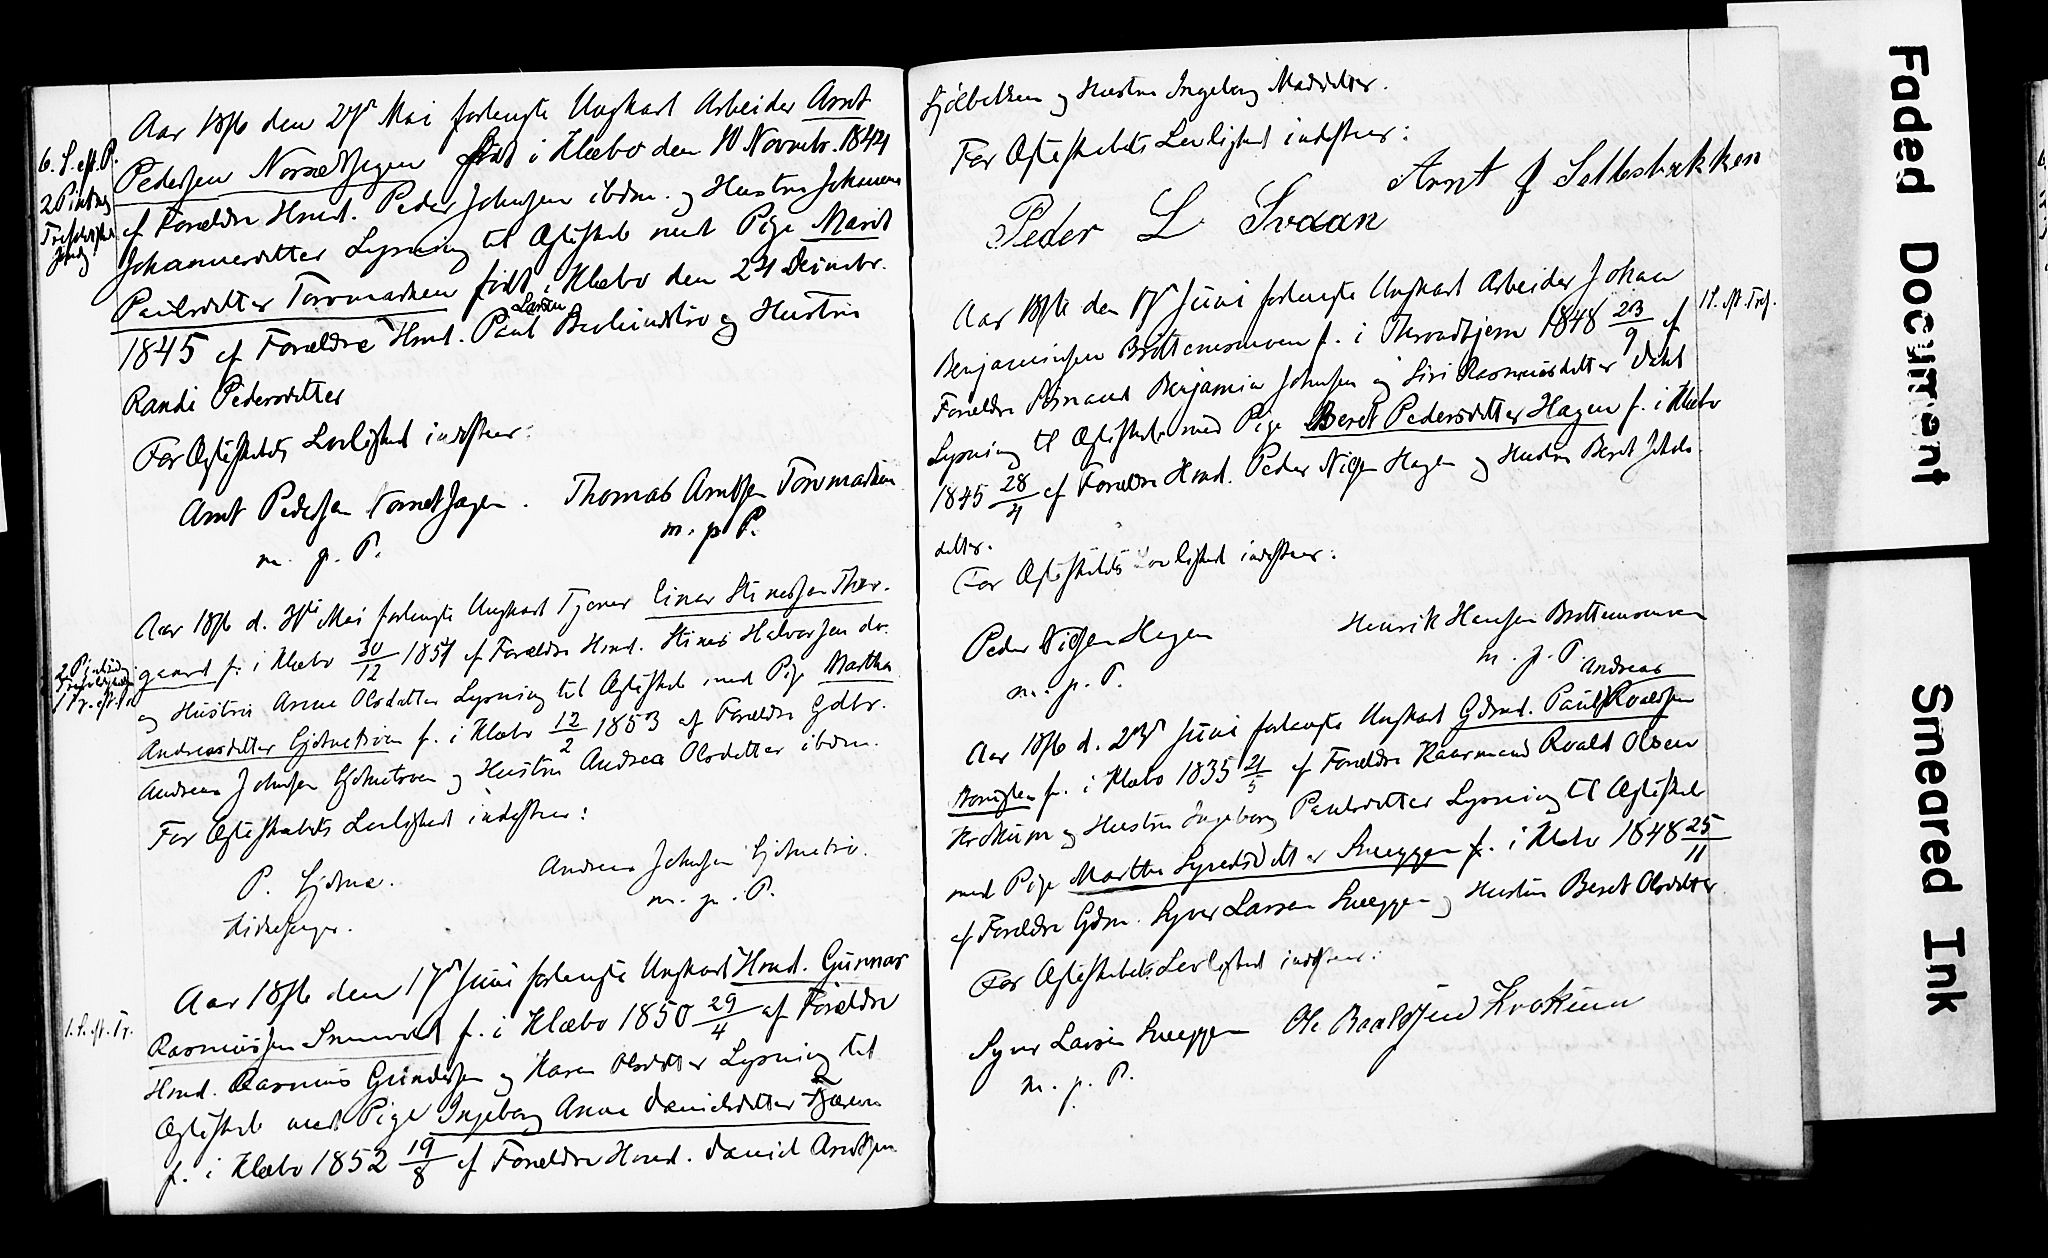 Aar 1876 den 27de Mai forlangte Ungkarl Arbeider Arnt
Pedersen Nornethagen født i Klæbo den 10 Novmbr. 1844
af Forældre Hmd. Peder Johnsen ibdm. og Hustru Johanna
Johannesdatter Lysning til Ægteskab med Pige Marit
Paulsdatter Torvmarken født i Klæbo den 24 Decmbr.
1845 af Forældre Hmd. Paul Larsen og Hustru
Randi Pedersdatter
For Ægteskabets Lovlighed indestaar:
Arnt Pedersen Nornethagen. Thomas Arntsen Torvmarken
m. p. P. m. p. P.
6. S. eft. P.
2 Pintsdag
Aar 1876 d. Mai forlangte Ungkarl Tjener Einar Stinessen Thor-
gaard f. i Klæbo 30/12 1851 af Forældre Hmd. Stines Halvorsen do.
og Hustru Anne Olsdatter Lysning til Ægteskab med Pige Martha
Andreasdatter Gjetnetrøen f. i Klæbo 12/2 1853 af Forældre Gdbr.
Andreas Johnsen Gjetnetrøen og Hustru Andrea Olsdatter ibdm.
For Ægteskabets Lovlighed indestaar:
P. Gjetne. Andreas Johnsen Gjetnetrø.
Kirkesanger. m. p. P.
Aar 1876 den 17de Juni forlangte Ungkarl Hmd. Gunnar
Rasmussen f. i Klæbo 1850 29/4 af Forældre
Hmd. Rasmus Gundersen og Karen Olsdatter Lysning til
Ægteskab med Pige Ingeborg Anna Danielsdatter
f. i Klæbo 1852 19/8 af Forældre Hmd. Daniel Arntsen
1. S. eft. Tr.
og Hustru Ingeborg Madsdatter.
For Ægteskabets Lovlighed indestaar:
Arnt J Selbsbakken
Peder L Svaan
Aar 1876 den 17de Juni forlangte Ungkarl Arbeider Johan
Benjaminsen Brøttemsmoen f. i Throndhjem 1848 23/9 af
Forældre Benjamin Johnsen og Siri Rasmusdatter
Lysning til Ægteskab med Pige Beret Pedersdatter Hagen f. i Klæbo
1845 28/4 af Forældre Hmd. Peder Nilsen Hagen og Hustru Beret Johns-
datter.
1 S. eft. Tref.
For Ægteskabets Lovlighed indestaar:
Peder Nilsen Hagen Henrik Hansen Brøttemsmoen
m. p. P. m. p. P.
Andreas
Aar 1876 d. 23de Juni forlangte Ungkarl Gdmd. Paul Roaldsen
f. i Klæbo 1835 21/5 af Forældre Kaarmand Roald Olsen
Krokum og Hustru Ingeborg Paulsdatter Lysning til Ægteskab
med Pige Martha Syversdatter Sneeggen f. i Klæbo 1848 25/11
af Forældre Gdm. Syver Larsen Sneeggen og Hustru Beret Olsdatter
For Ægteskabets Lovlighed indestaar:
Syver Larsen Sneeggen Ole Roaldsen Krokum
m. p. P.
Faded Document
Smeared Ink